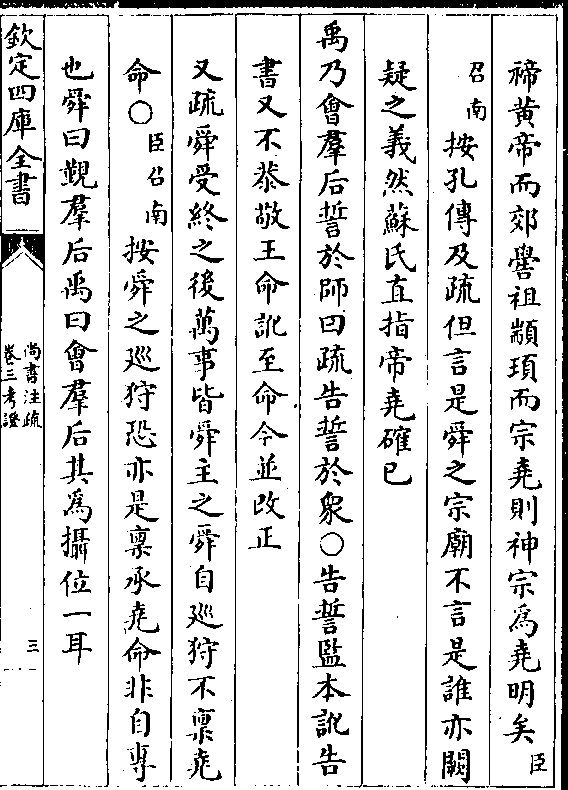 禘黄帝而郊嚳祖顓頊而宗堯則神宗為堯明矣臣
召南按孔傳及疏但言是舜之宗廟不言是誰亦闕
疑之義然蘇氏直指帝堯確已
禹乃會羣后誓於師曰疏告誓於衆○告誓監本訛告
書又不恭敬王命訛至命今並改正
又疏舜受終之後萬事皆舜主之舜自廵狩不稟堯
命○臣召南按舜之廵狩恐亦是稟承堯命非自專
也舜曰覲羣后禹曰會羣后其為攝位一耳
欽定四庫全書
尚書注疏
卷三考證
三